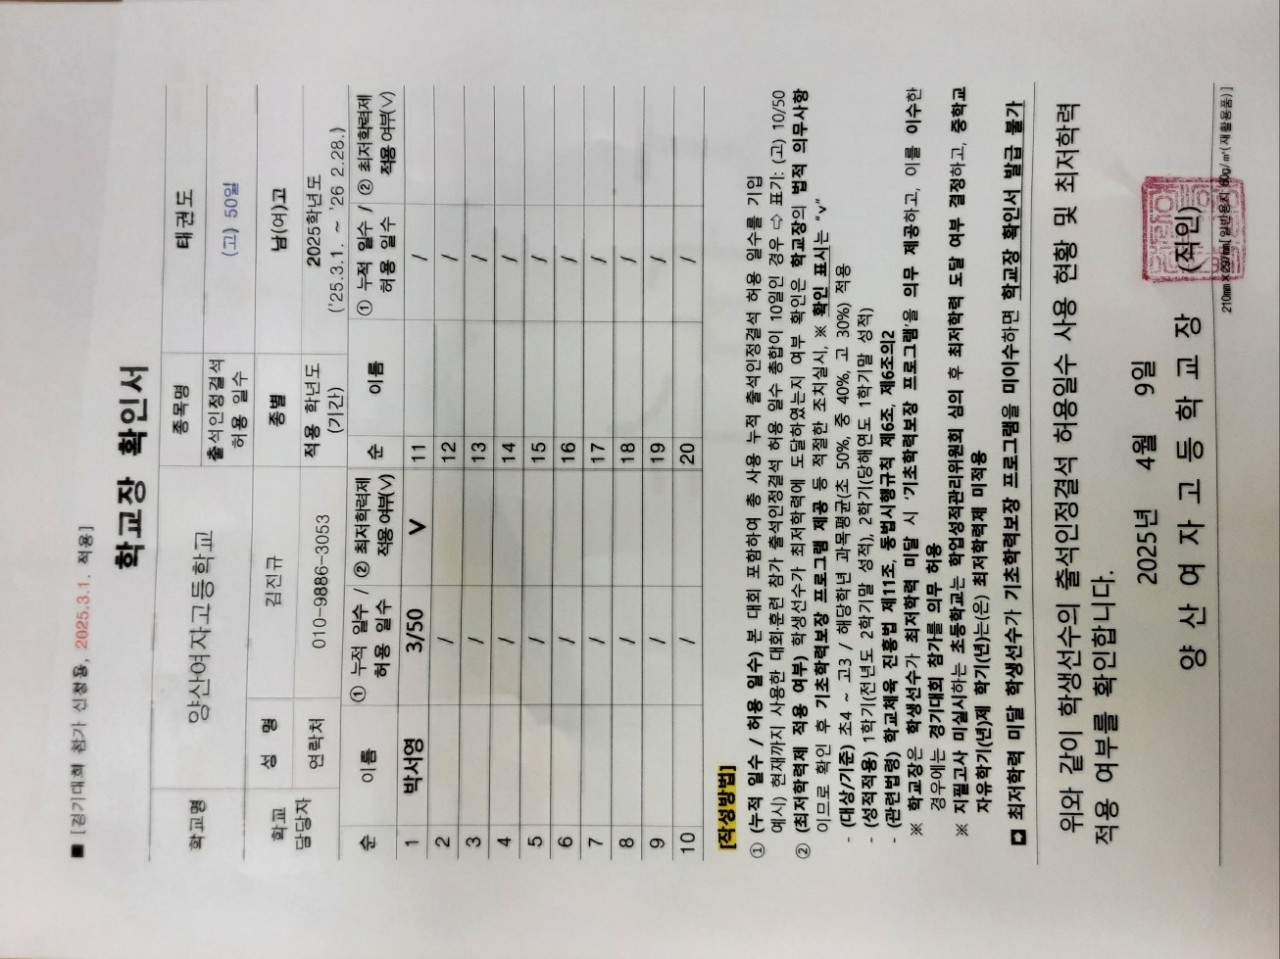 ■ [경기대회 참가 신청용, 2025.3.1. 적용]
학교장 확인서
학교명 양산여자고등학교 종목명 태권도
출석인정결석 허용 일수 (고) 50일
학교 담당자 성 명 김진규 종별 남(여)고
연락처 010-9886-3053 적용 학년도 (기간) 2025학년도 ('25.3.1. ~ '26 2.28.)
순 이름 ① 누적 일수 / 허용 일수 ② 최저학력제 적용 여부(√) 순 이름 ① 누적 일수 / 허용 일수 ② 최저학력제 적용 여부(√)
1 박서영 3/50 V 11 /
2 / 12 /
3 / 13 /
4 / 14 /
5 / 15 /
6 / 16 /
7 / 17 /
8 / 18 /
9 / 19 /
10 / 20 /
[작성방법]
① (누적 일수 / 허용 일수) 본 대회 포함하여 총 사용 누적 출석인정결석 허용 일수를 기입
예시) 현재까지 사용한 대회·훈련 참가 출석인정결석 허용 일수 총합이 10일인 경우 ⇨ 표기: (고) 10/50
② (최저학력제 적용 여부) 학생선수가 최저학력에 도달하였는지 여부 확인은 학교장의 법적 의무사항
이므로 확인 후 기초학력보장 프로그램 제공 등 적절한 조치실시, ※ 확인 표시는 "v"
- (대상/기준) 초4 ~ 고3 / 해당학년 과목평균(초 50%, 중 40%, 고 30%) 적용
- (성적적용) 1학기(전년도 2학기말 성적), 2학기(당해연도 1학기말 성적)
- (관련법령) 학교체육 진흥법 제11조, 동법시행규칙 제6조, 제6조의2
※ 학교장은 학생선수가 최저학력 미달 시 '기초학력보장 프로그램'을 의무 제공하고, 이를 이수한
경우에는 경기대회 참가를 의무 허용
※ 지필고사 미실시하는 초등학교는 학업성적관리위원회 심의 후 최저학력 도달 여부 결정하고, 중학교
자유학기(년)제 학기(년)는(은) 최저학력제 미적용
◘ 최저학력 미달 학생선수가 기초학력보장 프로그램을 미이수하면 학교장 확인서 발급 불가
위와 같이 학생선수의 출석인정결석 허용일수 사용 현황 및 최저학력
적용 여부를 확인합니다.
2025년 4월 9일
양 산 여 자 고 등 학 교 장 (직인)
210㎜×297㎜[일반용지 60g/㎡(재활용품)]